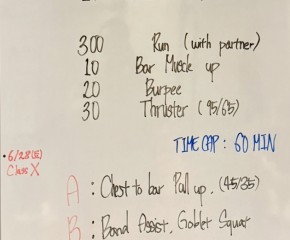 300 Run (with partner)
10 Bar Muscle up
20 Burpee
30 Thruster (95/65)
TIME CAP : 60 MIN
Class X
A : Chest to bar Pull up. (45/35)
B : Band Assist, Goblet Squat